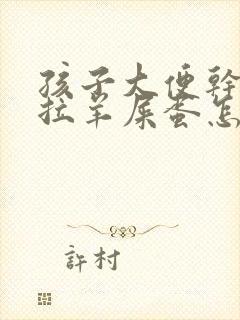 孩子大便幹
拉羊屎蛋怎
許村